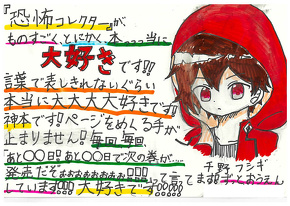 『恐怖コレクター』が、
ものすごくとにかく本…当に
大好きです!!
言葉で表しきれないぐらい
本当に大大大大好きです!!
神本です!!ページをめくる手が
止まりません!!毎回毎回、
あと〇〇日!!あと〇〇日で次の巻が…
発売だぞぉぉぉぉぉぉぉぉ!!!!って言てます!!
しています!!!大好きです!!!!!
千野フシギ